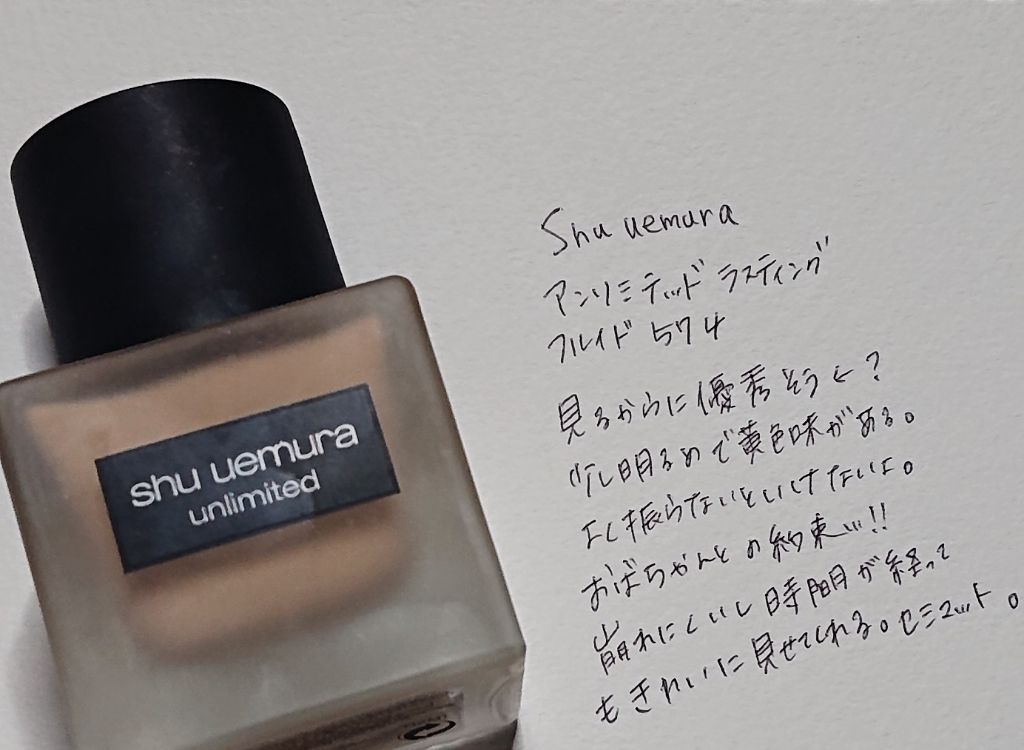 shu uemura
unlimited
Shu uemura
アンリミテッド ラスティング
フルイド 574
見るからに優秀そう←?
少し明るめで黄色味がある。
よく振らないといけないよ。
おばちゃんとの約束…!!
崩れにくいし時間が経って
もきれいに見せてくれる。セミマット。